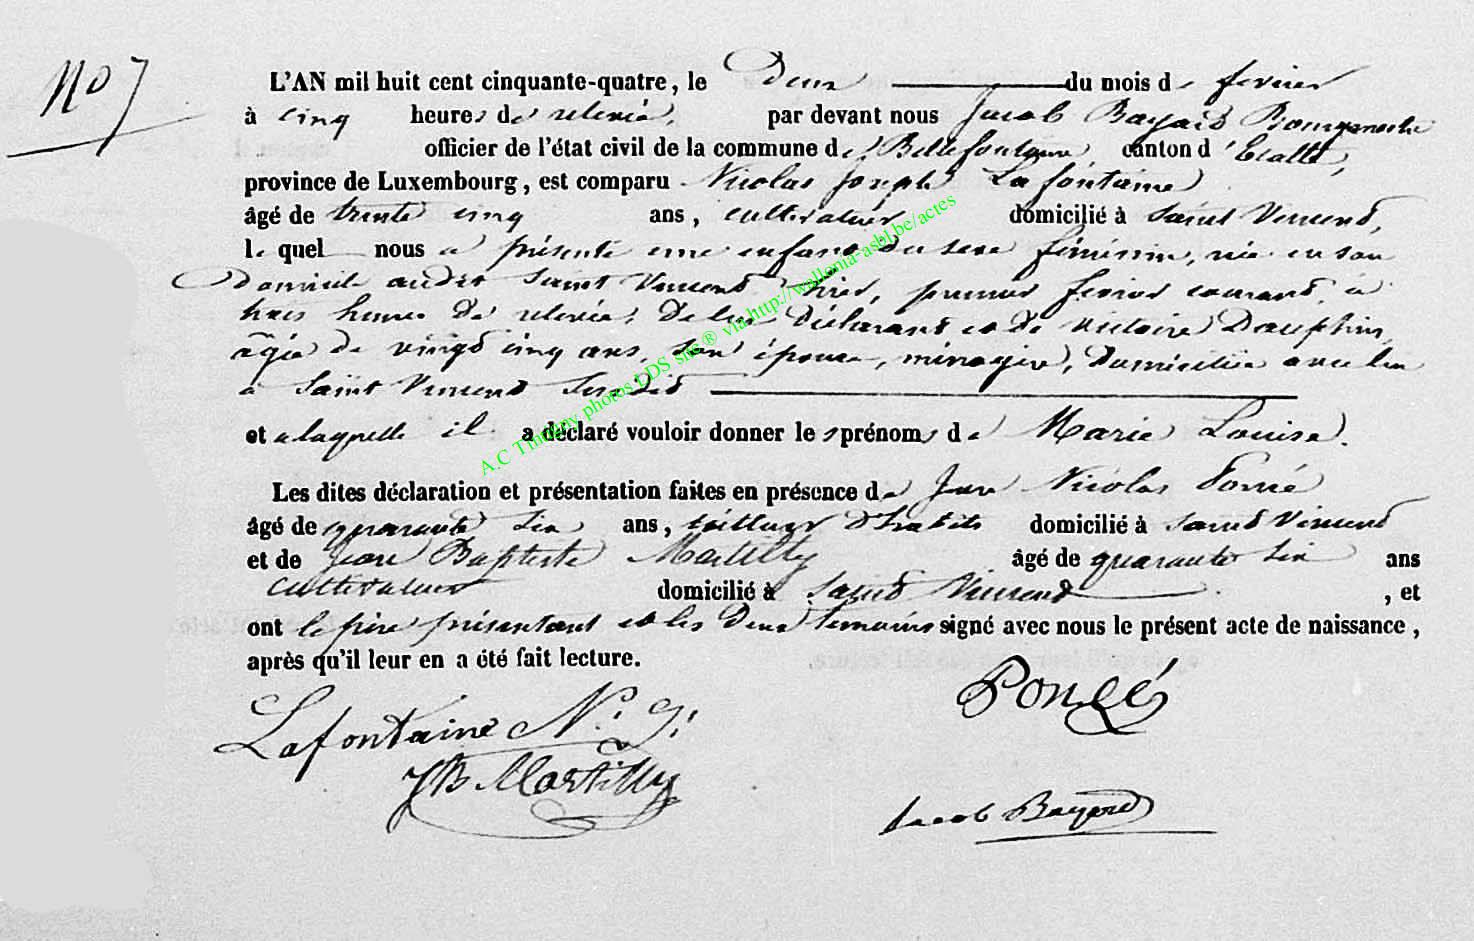 No 7
L'AN mil huit cent cinquante-quatre, le Deux du mois de fevrier
à cinq heures de relevée, par devant nous Jacob Bayard Bourgmestre
officier de l'état civil de la commune de Bellefontaine, canton d'Etalle,
province de Luxembourg, est comparu Nicolas Joseph Lafontaine
âgé de trente cinq ans, cultivateur domicilié à Saint Vincent,
lequel nous a présenté une enfant du sexe féminin, née en son
Domicile audit Saint Vincent hier, premier fevrier courant, à
trois heures de relevée, De lui Déclarant et de Victoire Dauphin,
âgée de vingt cinq ans, son épouse, ménagère, Domiciliée avec lui
à Saint Vincent susdit
et a laquelle il a déclaré vouloir donner les prénoms de Marie Louise.
Les dites déclaration et présentation faites en présence de Jean Nicolas Poncé
âgé de quarante six ans, tailleur d'habits domicilié à Saint Vincent
et de Jean Baptiste Martilly âgé de quarante six ans
cultivateur domicilié à Saint Vincent, et
ont le père présentant et les Deux temoins signé avec nous le présent acte de naissance,
après qu'il leur en a été fait lecture.
Lafontaine N. J.
Poncé
JB Martilly
Jacob Bayard
A.C Timothy photos LDS site® via http://wallonia-asbl.be/actes